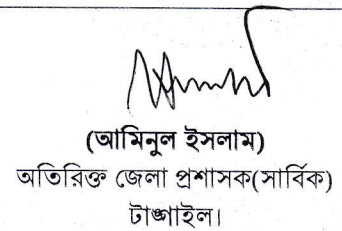 (আমিনুল ইসলাম)
অতিরিক্ত জেলা প্রশাসক(সার্বিক)
টাঙ্গাইল।